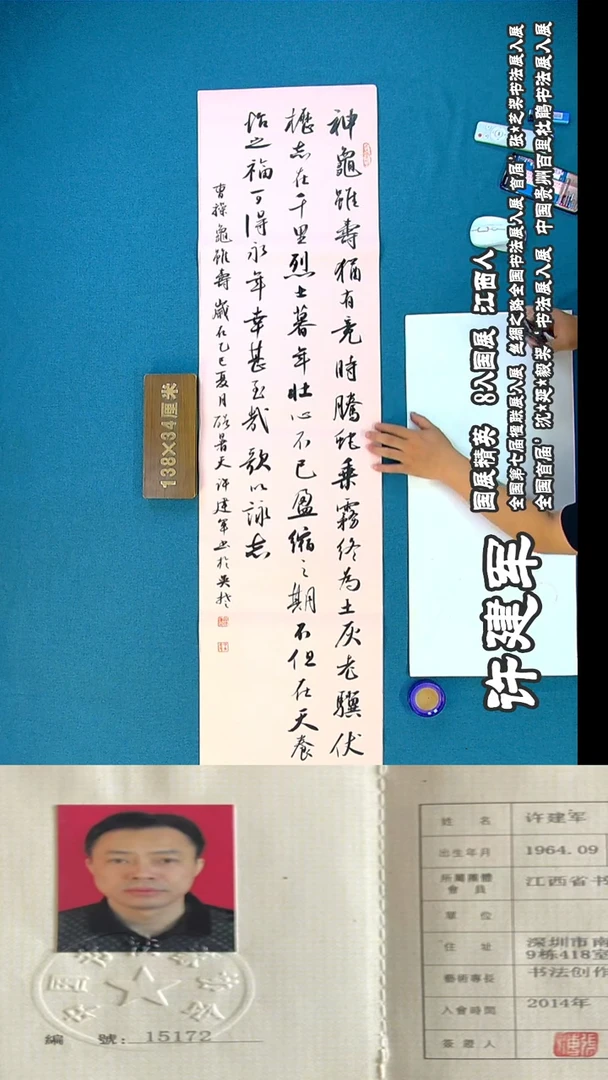 神龜雖壽猶有竟時騰蛇乘霧終為土灰老驥伏
櫪志在千里烈士暮年壮心不已盈縮之期不但在天養
怡之福可得永年幸甚至哉歌以詠志
曹操龜雖壽歲在乙巳夏月酷暑天许建軍书於
138×34厘米
许建军
国展精英 8入国展 江西人
全国第七届楹联展入展 丝绸之路全国书法展入展 首届'张*芝奖'书法展入展
全国首届'沈*延*毅奖'书法展入展 中国贵州百里杜鹃书法展入展
編 號: 15172
姓 名 许建军
出生年月 1964.09
所屬團體會員 江西省书
單 位
住 址 深圳市南
9栋418室
藝術專長 书法创作
入會時間 2014年
簽證人